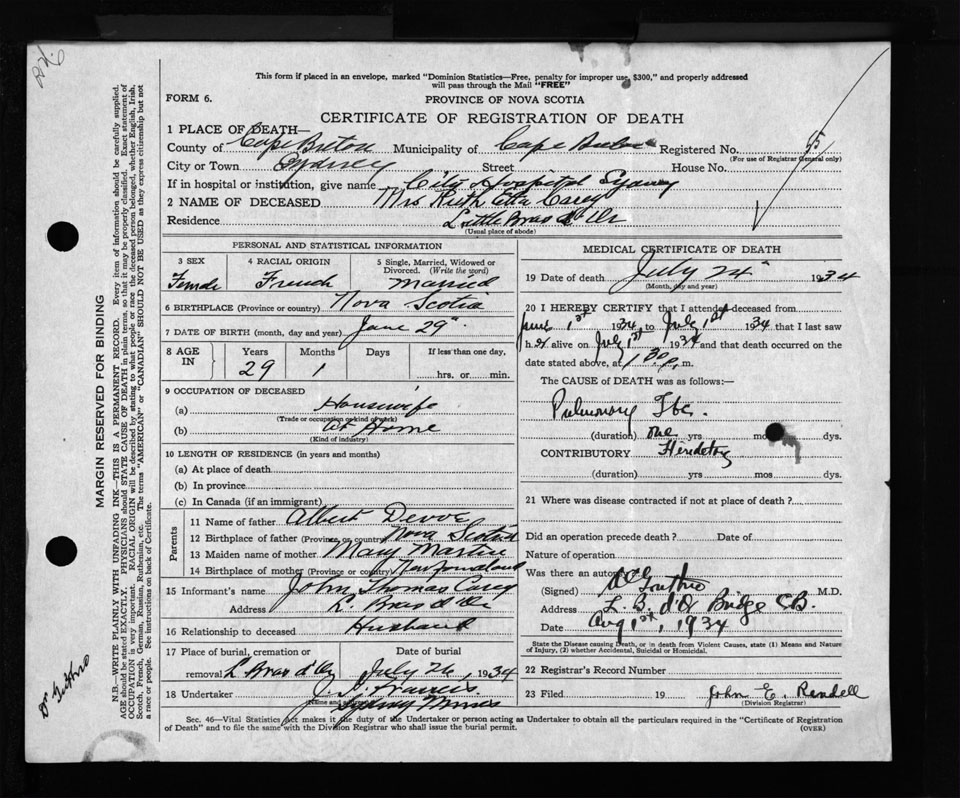 This form if placed in an envelope, marked "Dominion Statistics—Free, penalty for improper use, $300," and properly addressed
will pass through the Mail "FREE"
FORM 6.
PROVINCE OF NOVA SCOTIA
CERTIFICATE OF REGISTRATION OF DEATH
1 PLACE OF DEATH—
County of Cape Breton Municipality of Cape Breton Registered No.
(For use of Registrar General only)
City or Town Sydney Street House No.
If in hospital or institution, give name City Hospital Sydney
2 NAME OF DECEASED Mrs Ruth Etta Carey
Residence Little Bras d'Or
(Usual place of abode)
PERSONAL AND STATISTICAL INFORMATION
3 SEX 4 RACIAL ORIGIN 5 Single, Married, Widowed or Divorced. (Write the word)
Female French Married
6 BIRTHPLACE (Province or country) Nova Scotia
7 DATE OF BIRTH (month, day and year) June 29"
8 AGE IN Years Months Days If less than one day,
29 1 hrs. or min.
9 OCCUPATION OF DECEASED
(a) Housewife
(Trade or occupation or kind of work)
(b) At Home
(Kind of industry)
10 LENGTH OF RESIDENCE (in years and months)
(a) At place of death
(b) In province
(c) In Canada (if an immigrant)
Parents
11 Name of father Albert Devoe
12 Birthplace of father (Province or country) Nova Scotia
13 Maiden name of mother Mary Martin
14 Birthplace of mother (Province or country) Newfoundland
15 Informant's name John Thomas Carey
Address L. Bras d'Or
16 Relationship to deceased Husband
17 Place of burial, cremation or Date of burial
removal L Bras d'Or July 26, 1934
18 Undertaker Francis
(Name and address) Sydney Mines
MEDICAL CERTIFICATE OF DEATH
19 Date of death July 24" 1934
(Month, day and year)
20 I HEREBY CERTIFY that I attended deceased from
June 1st 1934, to July 1st 1934 that I last saw
h er alive on July 1st 1934 and that death occurred on the
date stated above, at 1 30 p. m.
The CAUSE OF DEATH was as follows:—
Pulmonary Tbc.
(duration) one yrs mos dys.
CONTRIBUTORY Hereditary
(duration) yrs mos dys.
21 Where was disease contracted if not at place of death?
Did an operation precede death? Date of
Nature of operation
Was there an autopsy
(Signed) M.D.
Address L. B. d'Or Bridge C.B.
Date Aug 1st, 1934
State the Disease causing Death, or in death from Violent Causes, state (1) Means and Nature
of Injury, (2) whether Accidental, Suicidal or Homicidal.
22 Registrar's Record Number
23 Filed 19 John E. Rendell
(Division Registrar)
Sec. 46—Vital Statistics Act makes it the duty of the Undertaker or person acting as Undertaker to obtain all the particulars required in the "Certificate of Registration
of Death" and to file the same with the Division Registrar who shall issue the burial permit.
(OVER)
MARGIN RESERVED FOR BINDING
N.B.—WRITE PLAINLY WITH UNFADING INK—THIS IS A PERMANENT RECORD. Every item of information should be carefully supplied.
AGE should be stated EXACTLY. PHYSICIANS should STATE CAUSE OF DEATH in plain terms, so that it may be properly classified. Exact statement of
OCCUPATION is very important. RACIAL ORIGIN will be described by stating to what people or race the deceased person belonged, whether English, Irish,
Scotch, French, German, Russian, Ruthenian, etc. The terms "AMERICAN" or "CANADIAN" SHOULD NOT BE USED as they express citizenship but not
a race or people. See instructions on back of Certificate.